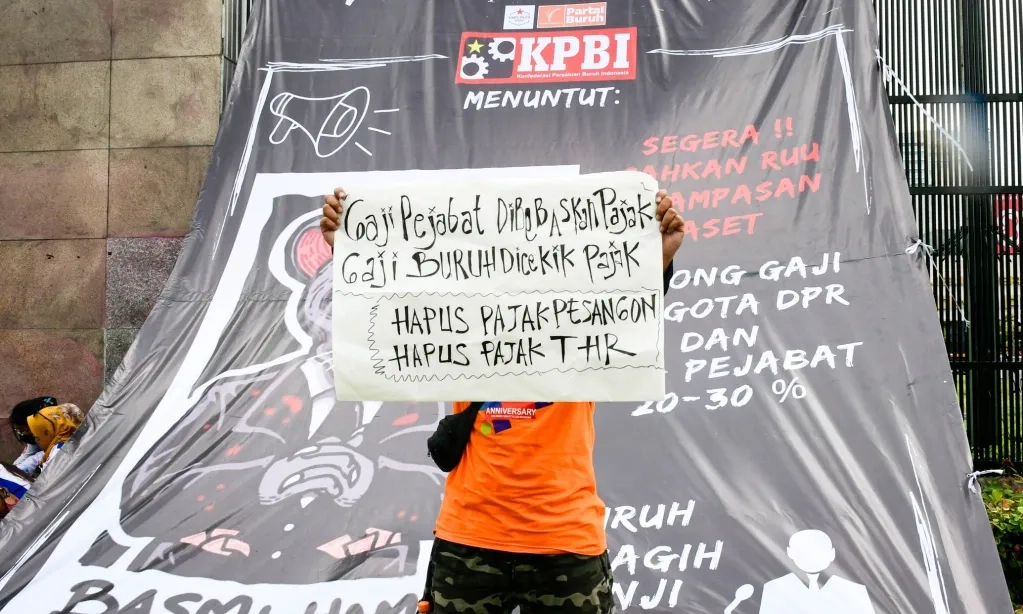 Partai
Buruh
KPBI
Konfederasi Persatuan Buruh Indonesia
MENUNTUT:
SEGERA !!
AHKAN RUU
AMPASAN
ASET
ONG GAJI
GOTA DPR
DAN
PEJABAT
20-30 %
Gaji Pejabat DiBEBASKan Pajak
Gaji BURUH Dicekik Pajak
HAPUS PAJAK PESANGON
HAPUS PAJAK THR
ANNIVERSARY
URUH
AGIH
NJI
BASMI HAM